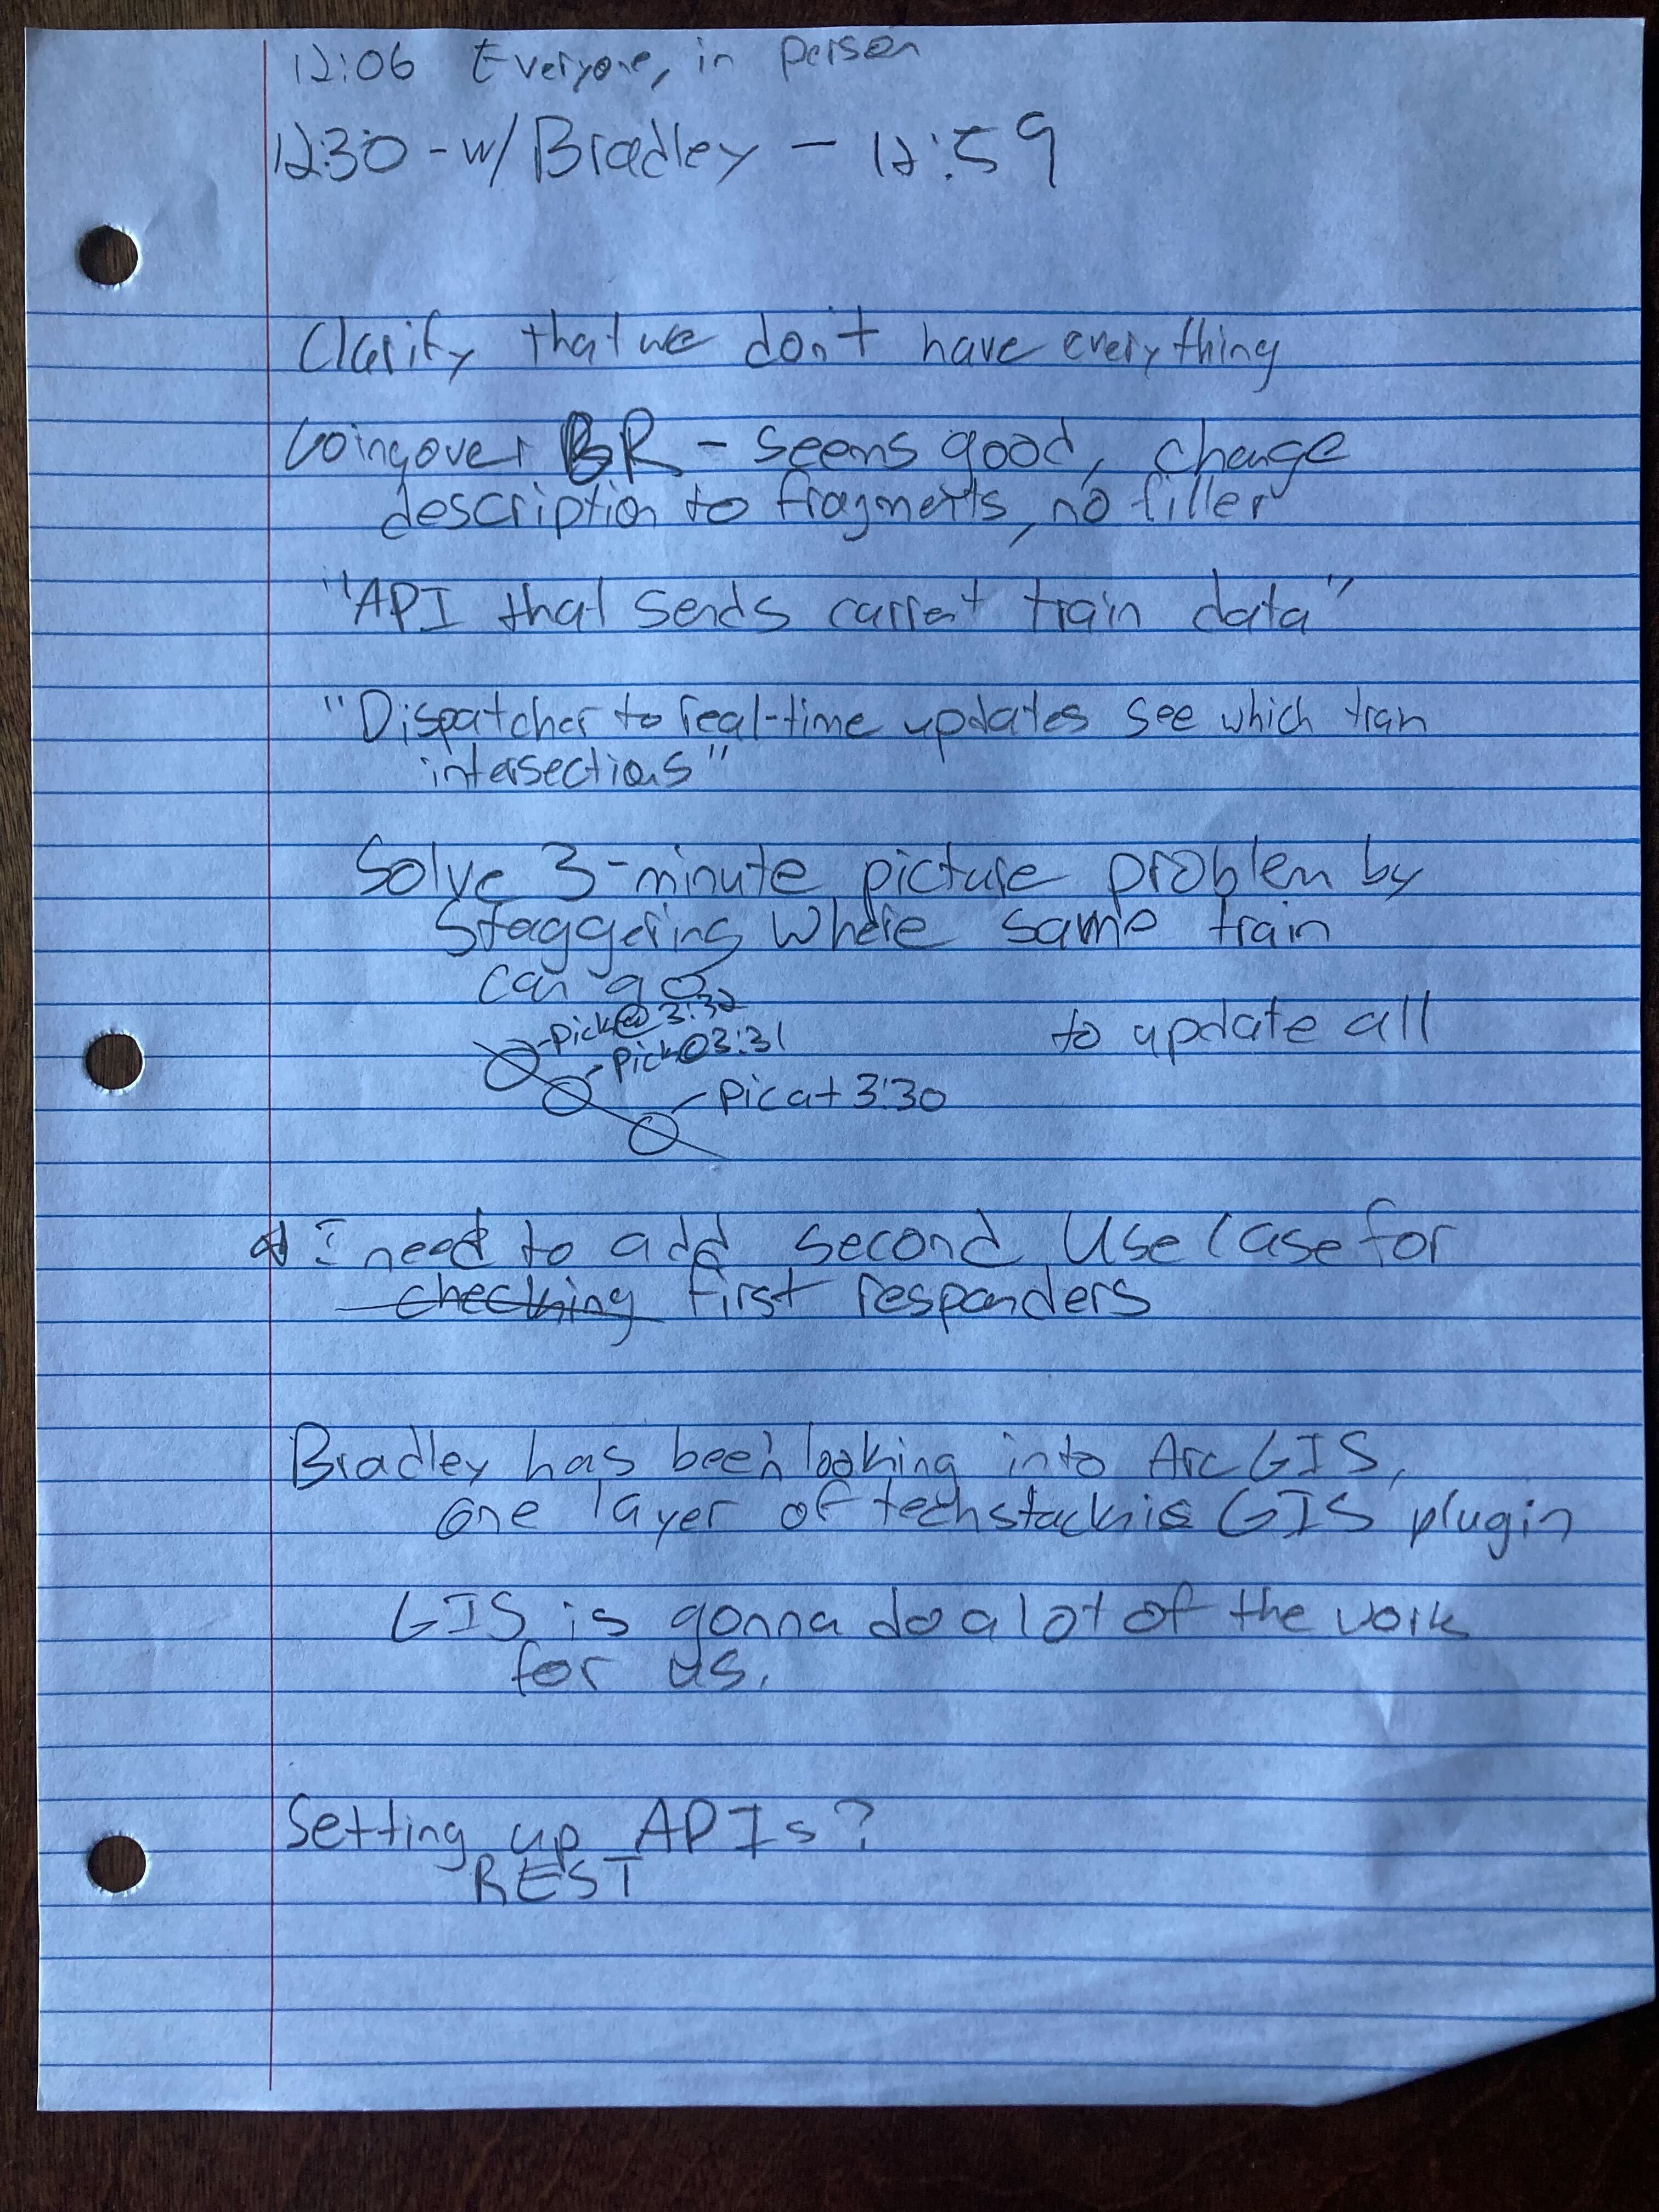 12:06 Everyone, in person
12:30 - w/ Bradley - 12:59
Clarify that we don't have everything
Going over BR - seems good, change
description to fragments, no filler
"API that sends current train data"
"Dispatcher to real-time updates see which tran
intersections"
Solve 3-minute picture problem by
staggering where same train
can go
-pick@3:32
-pick@3:31
to update all
-pic at 3:30
I need to add second Use Case for
checking first responders
Bradley has been looking into ArcGIS,
one layer of techstack is GIS plugin
GIS is gonna do a lot of the work
for us.
Setting up APIs?
REST